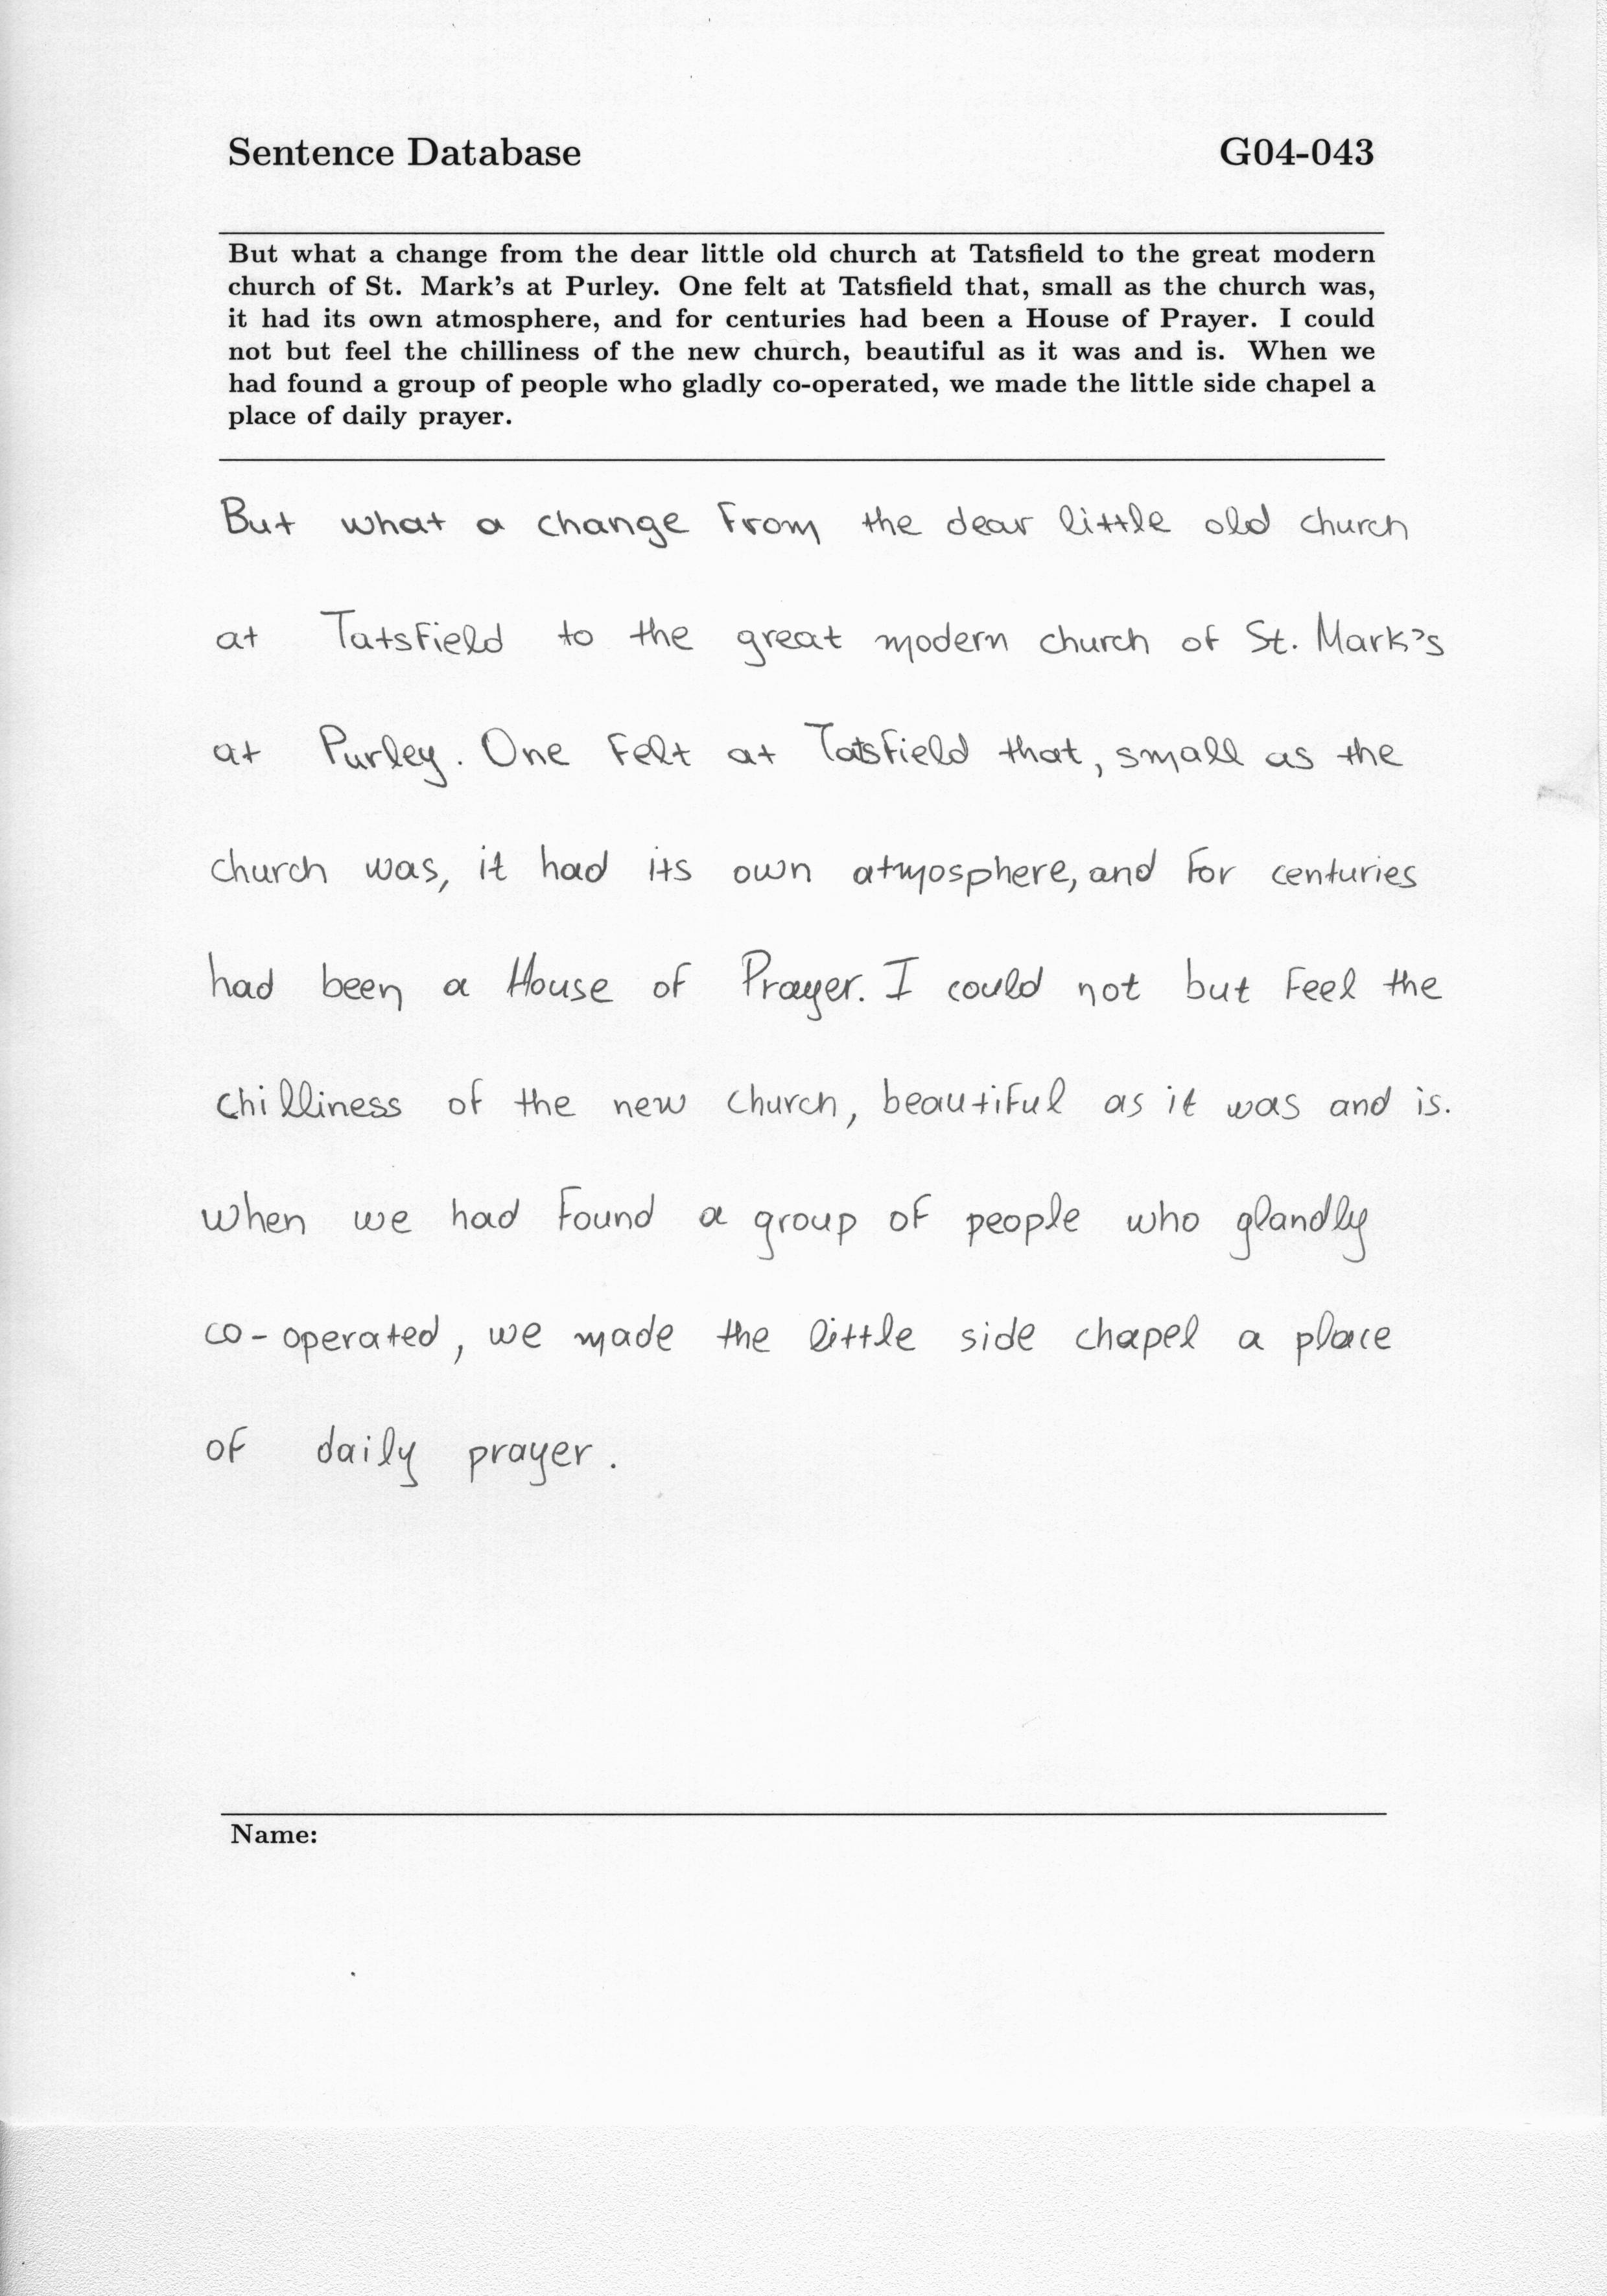 Sentence Database G04-043
But what a change from the dear little old church at Tatsfield to the great modern
church of St. Mark's at Purley. One felt at Tatsfield that, small as the church was,
it had its own atmosphere, and for centuries had been a House of Prayer. I could
not but feel the chilliness of the new church, beautiful as it was and is. When we
had found a group of people who gladly co-operated, we made the little side chapel a
place of daily prayer.
But what a change from the dear little old church
at Tatsfield to the great modern church of St. Mark's
at Purley. One felt at Tatsfield that, small as the
church was, it had its own atmosphere, and for centuries
had been a House of Prayer. I could not but feel the
chilliness of the new church, beautiful as it was and is.
When we had found a group of people who glandly
co-operated, we made the little side chapel a place
of daily prayer.
Name: